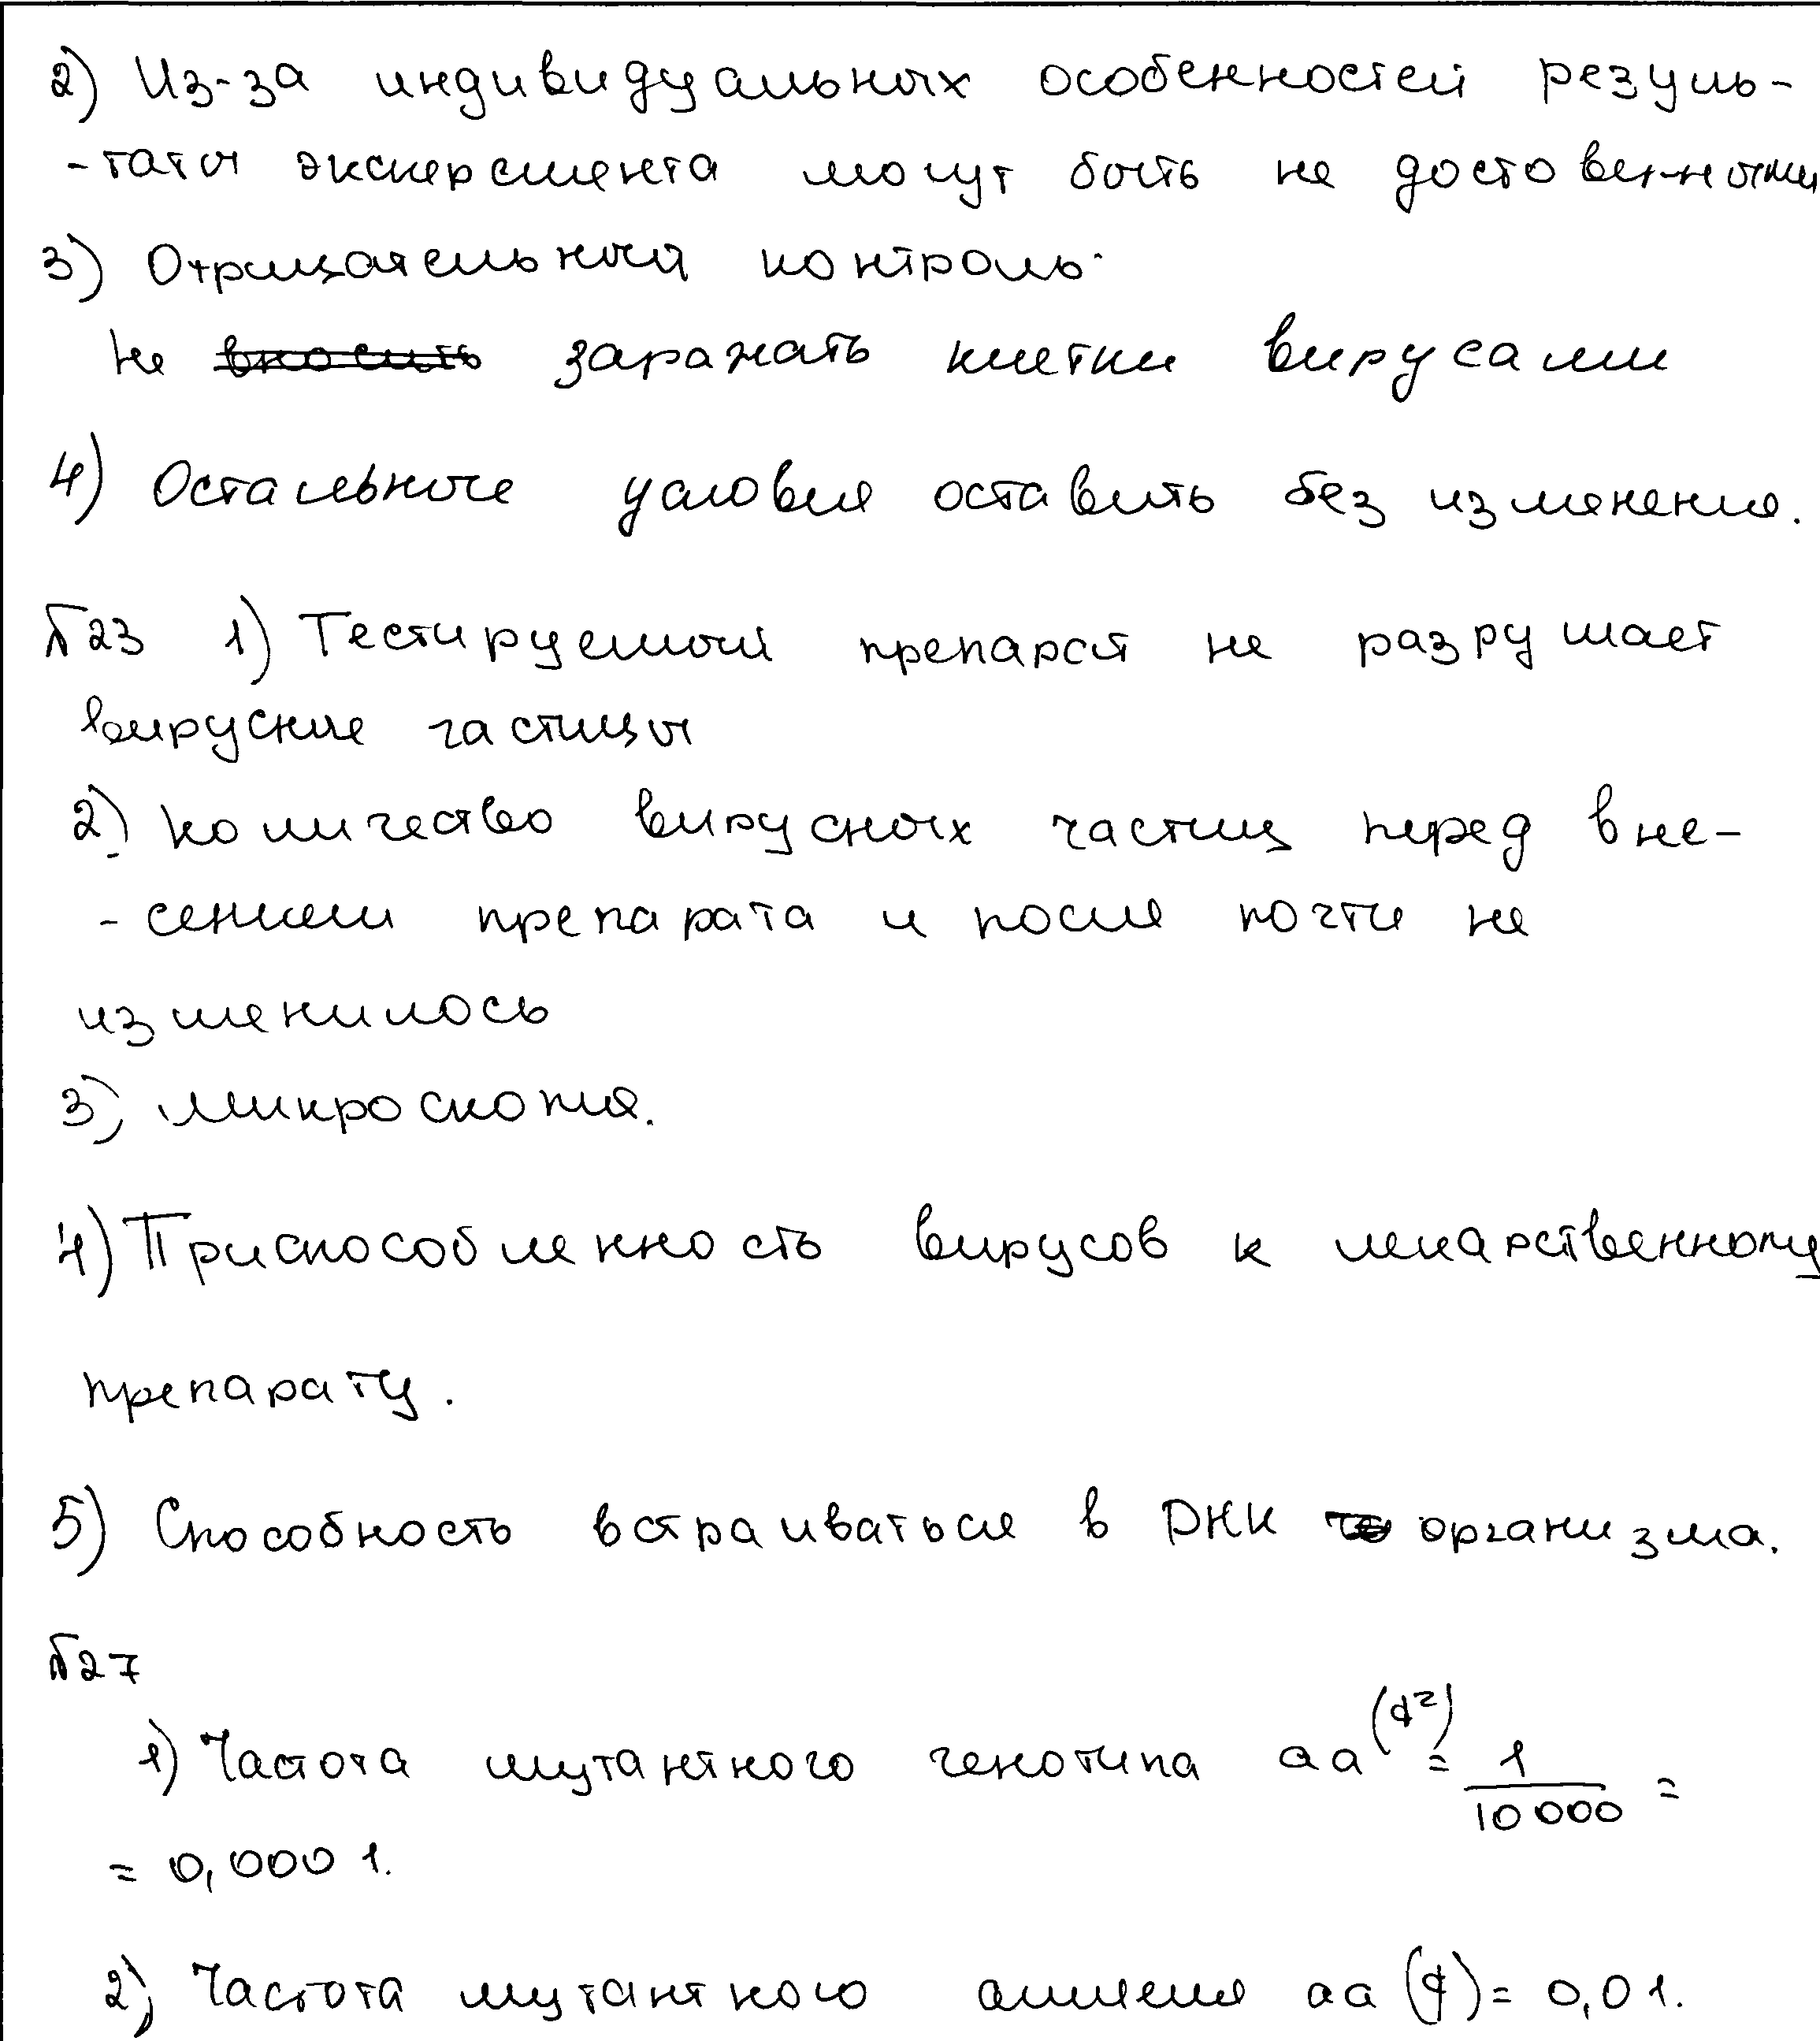 2) Из-за индивидуальных особенностей резуль-
-таты эксперемента могут быть не достоверными
3) Отрицательный контроль.
Не вносить заражать клетки вирусами
4) Остальные условия оставить без изменения.
№23 1) Тестируемый препарат не разрушает
вирусные частицы
2) Количество вирусных частиц перед вне-
-сением препарата и после почти не
изменилось
3) Микроскопия.
4) Приспособленность вирусов к лекарственному
препарату.
5) Способность встраиваться в РНК организма.
№27
1) Частота мутантного генотипа аа (q²) = 1/10 000 =
= 0,0001.
2) Частота мутантного аллеля аа (q) = 0,01.